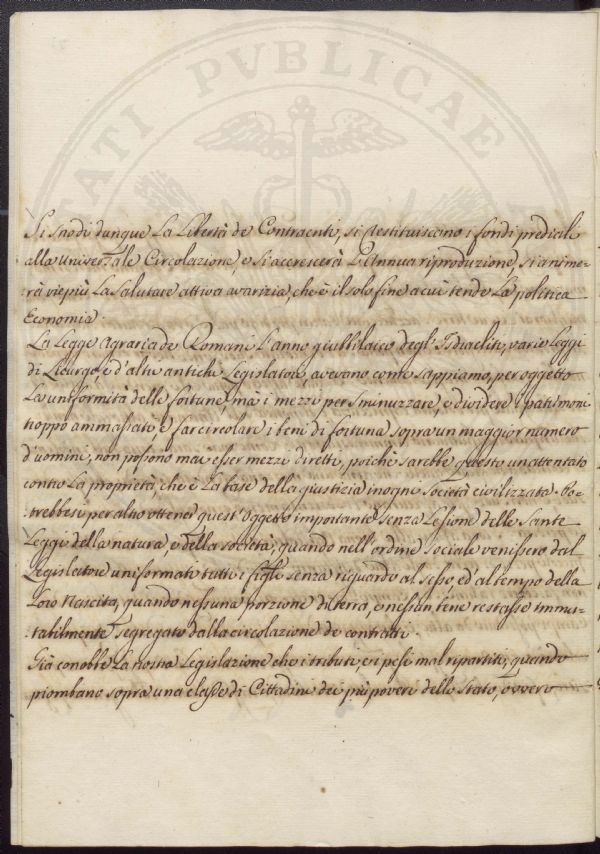 TATI PVBLICAE
Si snodi dunque la Libertà de Contraenti, si restituiscono i fondi prediali
alla univer:ale Circolazione, e si accrescerà l'Annua riproduzione, si anime-
rà viepiù la salutare attiva avarizia, che è il solo fine a cui tende la politica
Economia.
La Legge Agraria de Romani l'anno giubbilaico degl'Isdraeliti, varie leggi
di Licurgo, e d'altri antichi Legislatori, avevano come sappiamo, per oggetto
la uniformità delle fortune, mà i mezzi per sminuzzare, e dividere i patrimoni
troppo ammassati, e far circolare i beni di fortuna sopra un maggior numero
d'uomini, non possono mai esser mezzi diretti, poiche sarebbe questo un attentato
contro la proprietà, che è la base della giustizia in ogni società civilizzata. Po-
:trebbesi per altro ottener quest'oggetto importante senza Lesione delle Sante
Leggi della natura, e della società, quando nell'ordine sociale venissero dal
Legislatore uniformati tutti i figli senza riguardo al sesso, ed'al tempo della
loro Nascita, quando nessuna porzione di terra, e nessun bene restasse immu-
:tabilmente segregato dalla circolazione de contratti.
Già conobbe la nostra Legislazione che i tributi, ei pesi mal ripartiti, quando
piombano sopra una classe di Cittadini dei più poveri dello Stato, ovvero